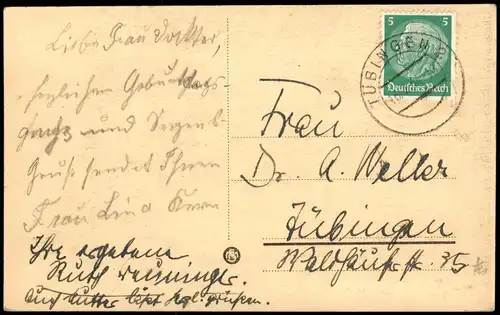 Liebe Frau Doktor,
herzlichen Geburtstags-
und Segens-
sendet Ihnen
Frau Lina
Ihre ergebene
Ruth
Auch Mutter lässt hzl. grüßen.
5 5
Deutsches Reich
TÜBINGEN
Frau
Dr. A. Weller
Tübingen
35